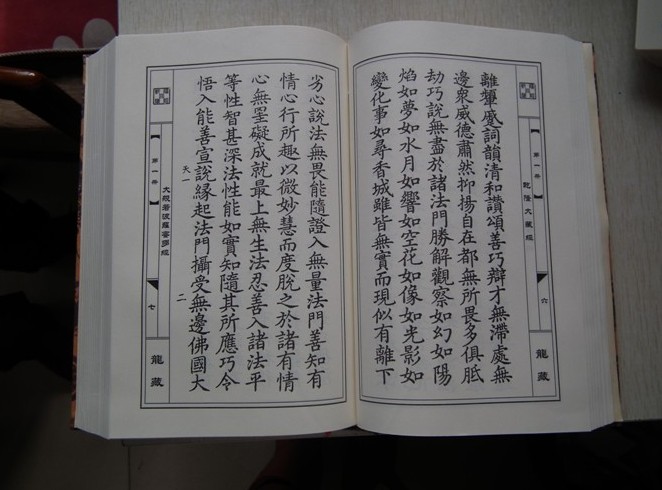 乾隆大藏經
第一冊
六
龍藏
離顰蹙詞韻清和讚頌善巧辯才無滯處無
邊眾威德肅然抑揚自在都無所畏多俱胝
劫巧說無盡於諸法門勝解觀察如幻如陽
焰如夢如水月如響如空花如像如光影如
變化事如尋香城雖皆無實而現似有離下
劣心說法無畏能隨證入無量法門善知有
情心行所趣以微妙慧而度脫之於諸有情
心無罣礙成就最上無生法忍善入諸法平
等性智甚深法性能如實知隨其所應巧令
悟入能善宣說緣起法門攝受無邊佛國大
天一
二
第一冊
大般若波羅蜜多經
七
龍藏